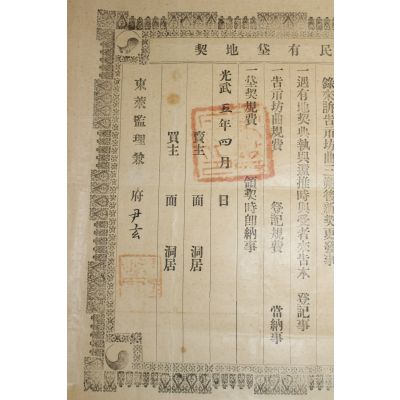 民有垈地契
後新契更發事
一遇有地契典執與還推時與受者來告本 登記事
一告市坊曲規費 登記規費 當納事
一垈契規費 領契時卽納事
光武五年四月 日
賣主 面 洞居
買主 面 洞居
東萊監理兼 府尹玄